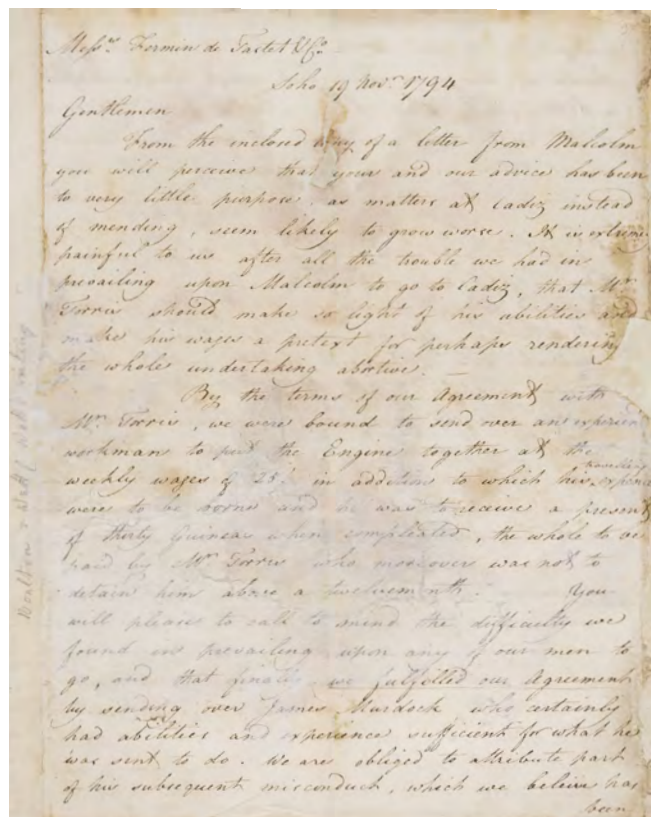 Messrs. Fermin de Tastet & Co.
Soho 19 Novr. 1794
Gentlemen
From the inclosed copy of a letter from Malcolm
you will perceive that yours and our advice has been
to very little purpose. as matters at Cadiz instead
of mending, seem likely to grow worse. It is extreme
painful to us after all the trouble we had in
prevailing upon Malcolm to go to Cadiz, that Mr.
Torris should make so light of his abilities and
make his wages a pretext for perhaps rendering
the whole undertaking abortive. —
By the terms of our Agreement with
Mr. Torris, we were bound to send over an experien
workman to put the Engine together at the
weekly wages of 25/ in addition to which his travelling expence
were to be borne and he was to receive a present
of thirty Guineas when compleated, the whole to be
paid by Mr. Torris who moreover was not to
detain him above a twelvemonth. You
will please to call to mind the difficulty we
found in prevailing upon any of our men to
go, and that finally we fulfilled our Agreement
by sending over James Murdock who certainly
had abilities and experience sufficient for what he
was sent to do. We are obliged to attribute part
of his subsequent misconduct, which we beleive has
been
Boulton & Watt